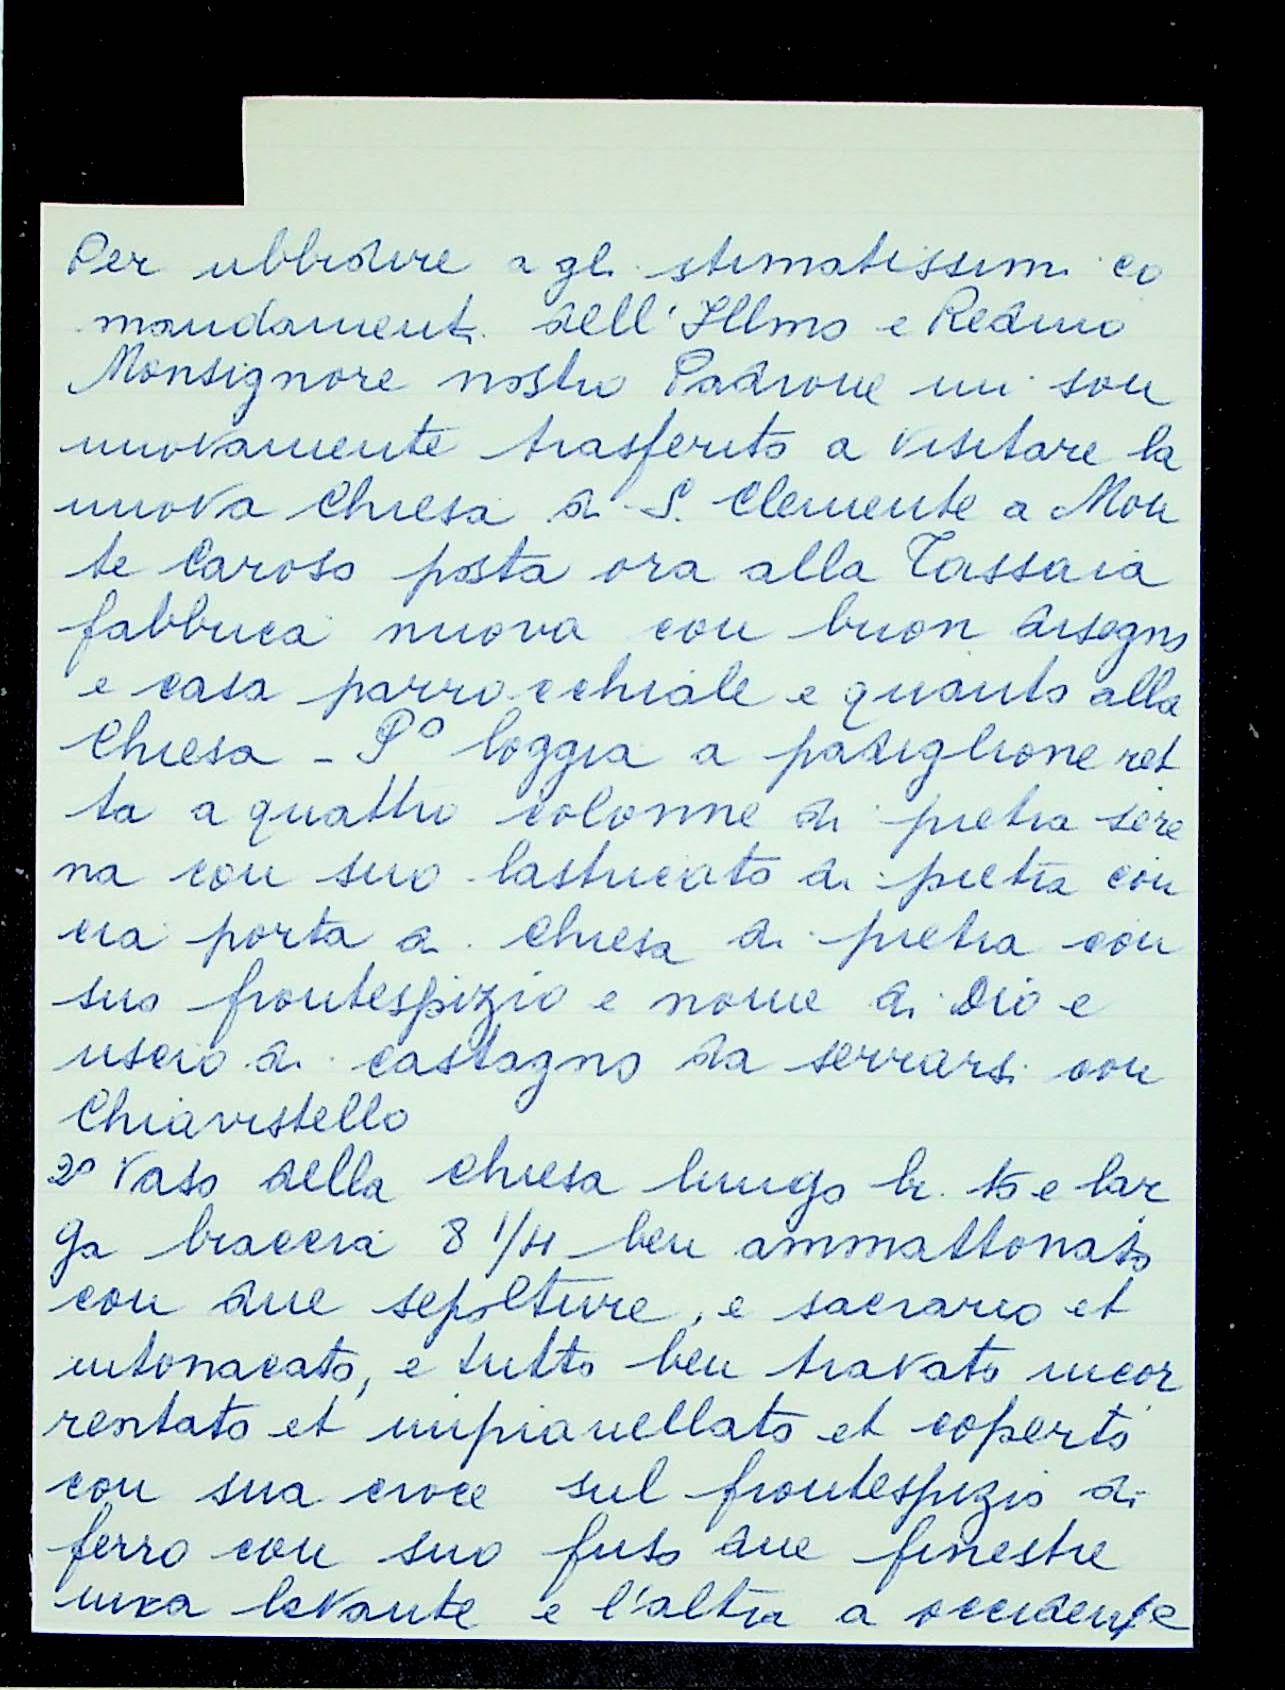 Per ubbidire agli stimatissimi co
mandamenti dell'Illmo e Redmo
Monsignore nostro Padrone mi son
nuovamente trasferito a visitare la
nuova Chiesa di S. Clemente a Mon
te Caroso posta ora alla Tassaia
fabbrica nuova con buon disegno
e casa parrocchiale e quanto alla
Chiesa - P° loggia a padiglione ret
ta a quattro colonne di pietra sere
na con suo lastricato di pietra con
cia porta di Chiesa di pietra con
suo frontespizio e nome di Dio e
uscio di castagno da serrarsi con
Chiavistello
2° Vaso della Chiesa lungo br. 15 e lar
ga braccia 8 1/4 ben ammattonato
con due sepolture, e sacrario et
intonacato, e tutto ben travato incor
rentato et impianellato et coperto
con sua croce sul frontespizio di
ferro con suo fuso due finestre
una levante e l'altra a occidente